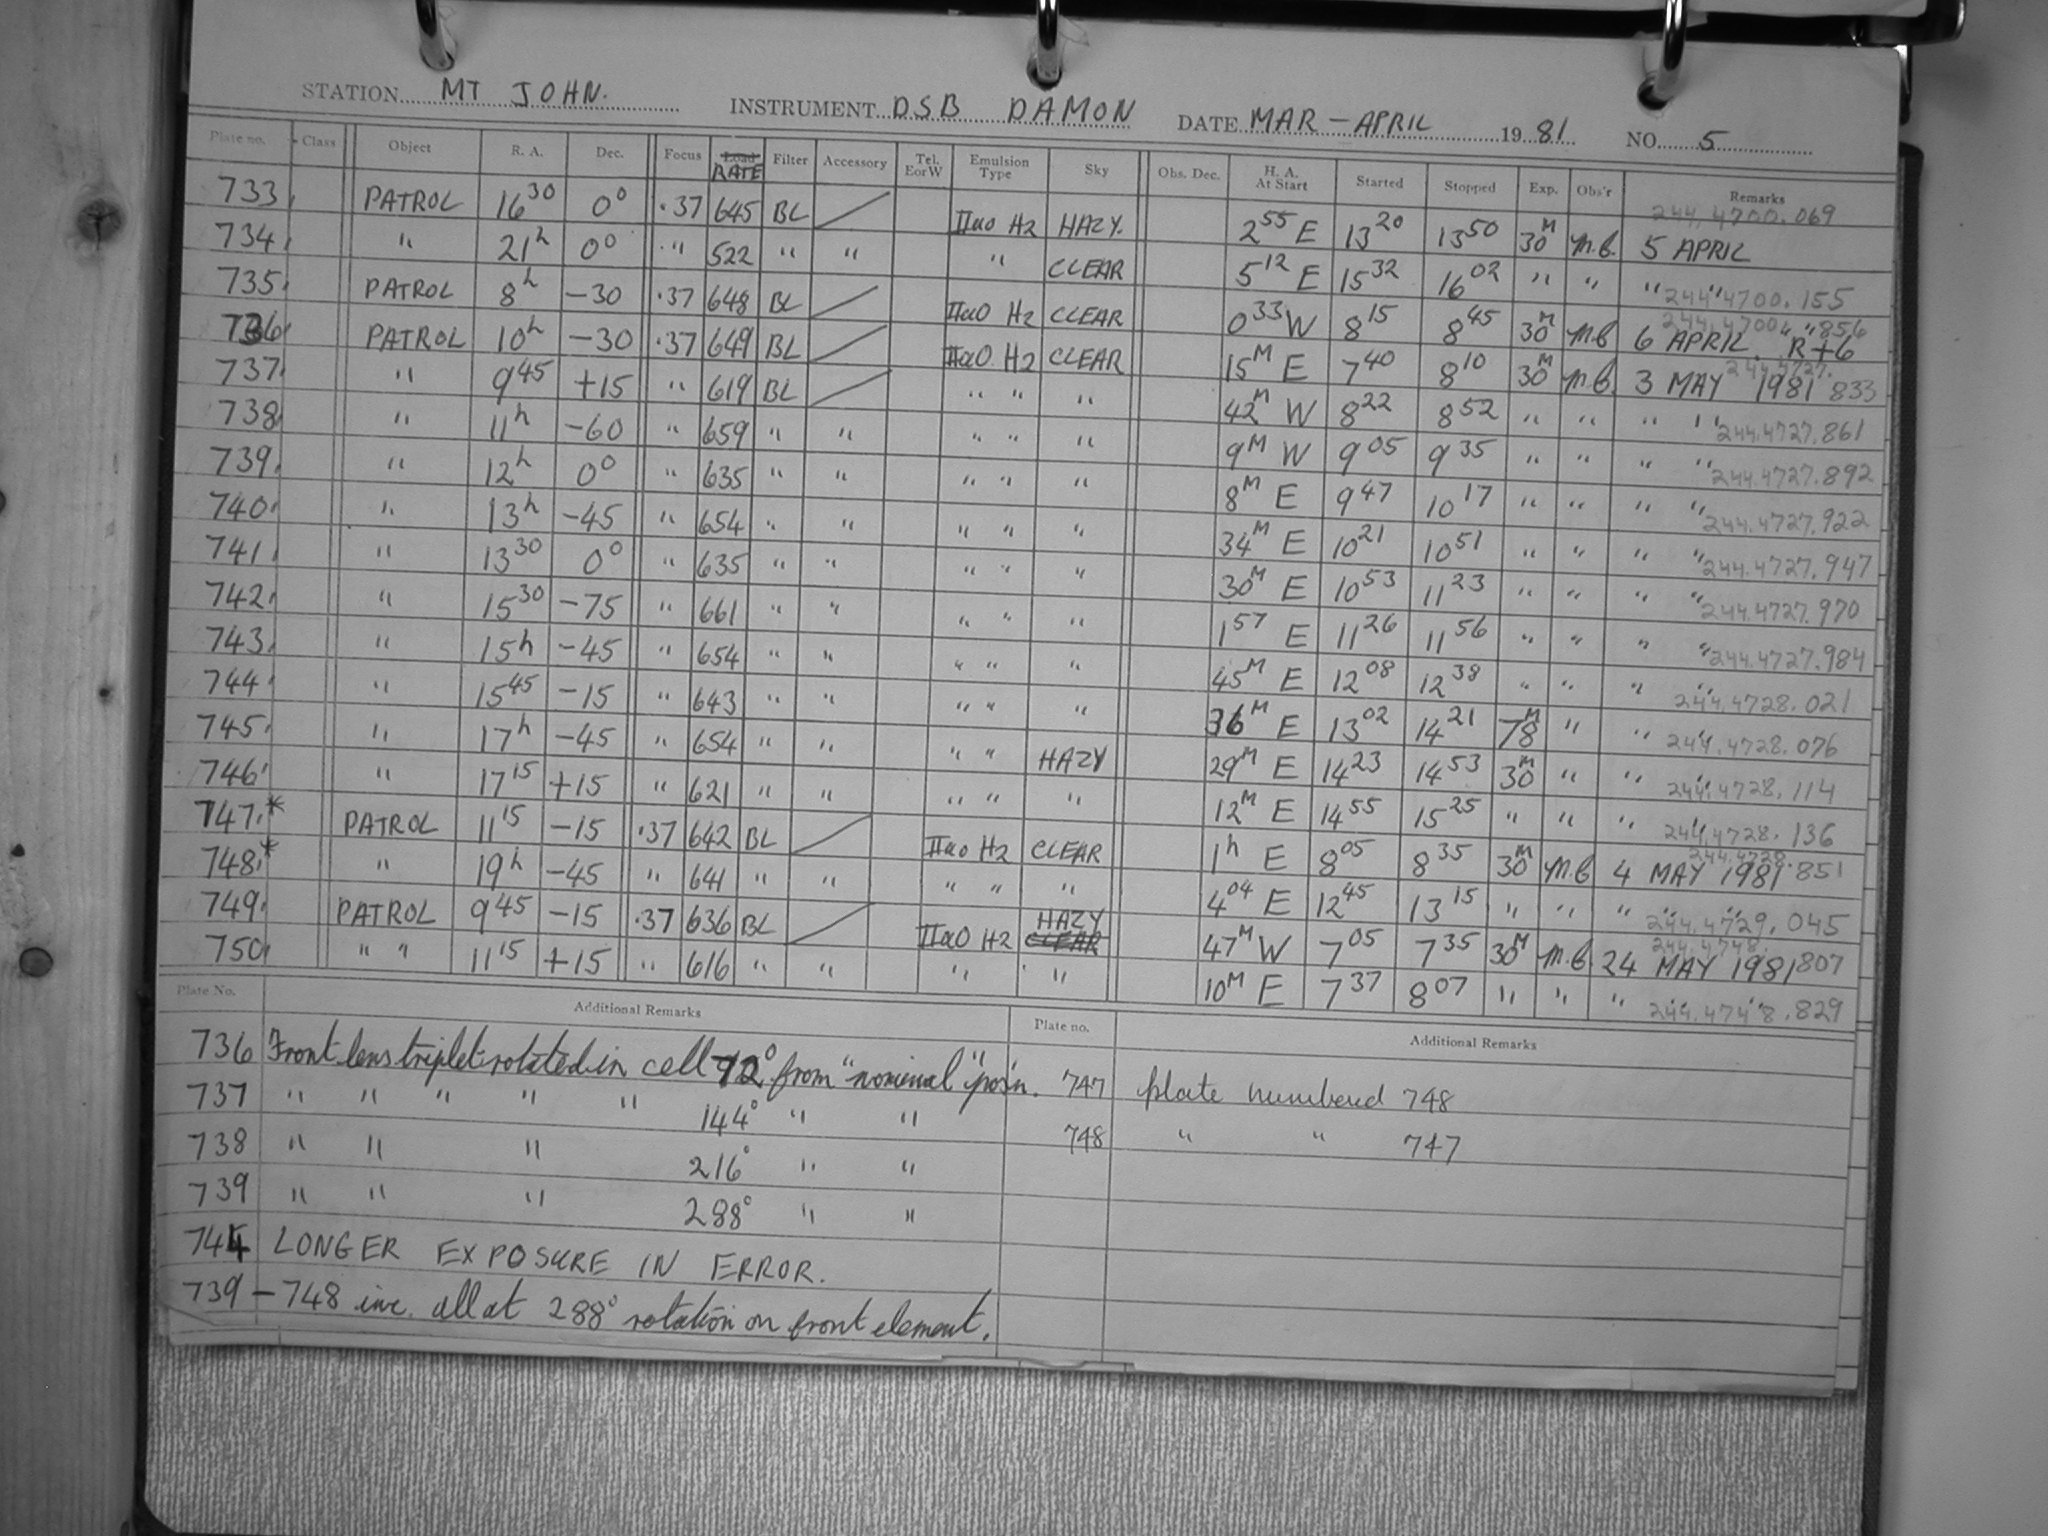 STATION MT JOHN. INSTRUMENT DSB DAMON DATE MAR - APRIL 1981 NO. 5
Plate no. Class Object R. A. Dec. Focus Load RATE Filter Accessory Tel. E or W Emulsion Type Sky Obs. Dec. H. A. At Start Started Stopped Exp. Obs'r Remarks
733 PATROL 16 30 0° .37 645 BL IIaO H2 HAZY. 2 55 E 13 20 13 50 30 M M.B. 5 APRIL 244.4700.069
734 " 21 h 0° " 522 " " " CLEAR 5 12 E 15 32 16 02 " " " " 244.4700.155
735 PATROL 8 h -30 .37 648 BL IIaO H2 CLEAR 0 33 W 8 15 8 45 30 M M.B 6 APRIL 244.4700.856
736 PATROL 10 h -30 .37 649 BL IIaO H2 CLEAR 15 M E 7 40 8 10 30 M M.B. 3 MAY 1981 244.4727.833
737 " 9 45 +15 " 619 BL " " " 42 M W 8 22 8 52 " " " " 244.4727.861
738 " 11 h -60 " 659 " " " " " 9 M W 9 05 9 35 " " " " 244.4727.892
739 " 12 h 0° " 635 " " " " " 8 M E 9 47 10 17 " " " " 244.4727.922
740 " 13 h -45 " 654 " " " " " 34 M E 10 21 10 51 " " " " 244.4727.947
741 " 13 30 0° " 635 " " " " " 30 M E 10 53 11 23 " " " " 244.4727.970
742 " 15 30 -75 " 661 " " " " " 1 57 E 11 26 11 56 " " " " 244.4727.984
743 " 15 h -45 " 654 " " " " " 45 M E 12 08 12 38 " " " " 244.4728.021
744 " 15 45 -15 " 643 " " " " " 36 M E 13 02 14 21 78 M " " 244.4728.076
745 " 17 h -45 " 654 " " " " HAZY 29 M E 14 23 14 53 30 M " " " 244.4728.114
746 " 17 15 +15 " 621 " " " " " 12 M E 14 55 15 25 " " " " 244.4728.136
747 * PATROL 11 15 -15 .37 642 BL IIaO H2 CLEAR 1 h E 8 05 8 35 30 M M.B 4 MAY 1981 244.4728.851
748 * " 19 h -45 " 641 " " " " " 4 04 E 12 45 13 15 " " " " 244.4729.045
749 PATROL 9 45 -15 .37 636 BL IIaO H2 HAZY CLEAR 47 M W 7 05 7 35 30 M M.B. 24 MAY 1981 244.4748.807
750 " " 11 15 +15 " 616 " " " " 10 M E 7 37 8 07 " " " " 244.4748.829
Plate No. Additional Remarks Plate no. Additional Remarks
736 Front lens triplet rotated in cell 72° from "nominal" pos'n. 747 plate numbered 748
737 " " " " " 144° " " 748 " " 747
738 " " " 216° " "
739 " " " 288° " "
744 LONGER EXPOSURE IN ERROR.
739 - 748 inc. all at 288° rotation on front element.